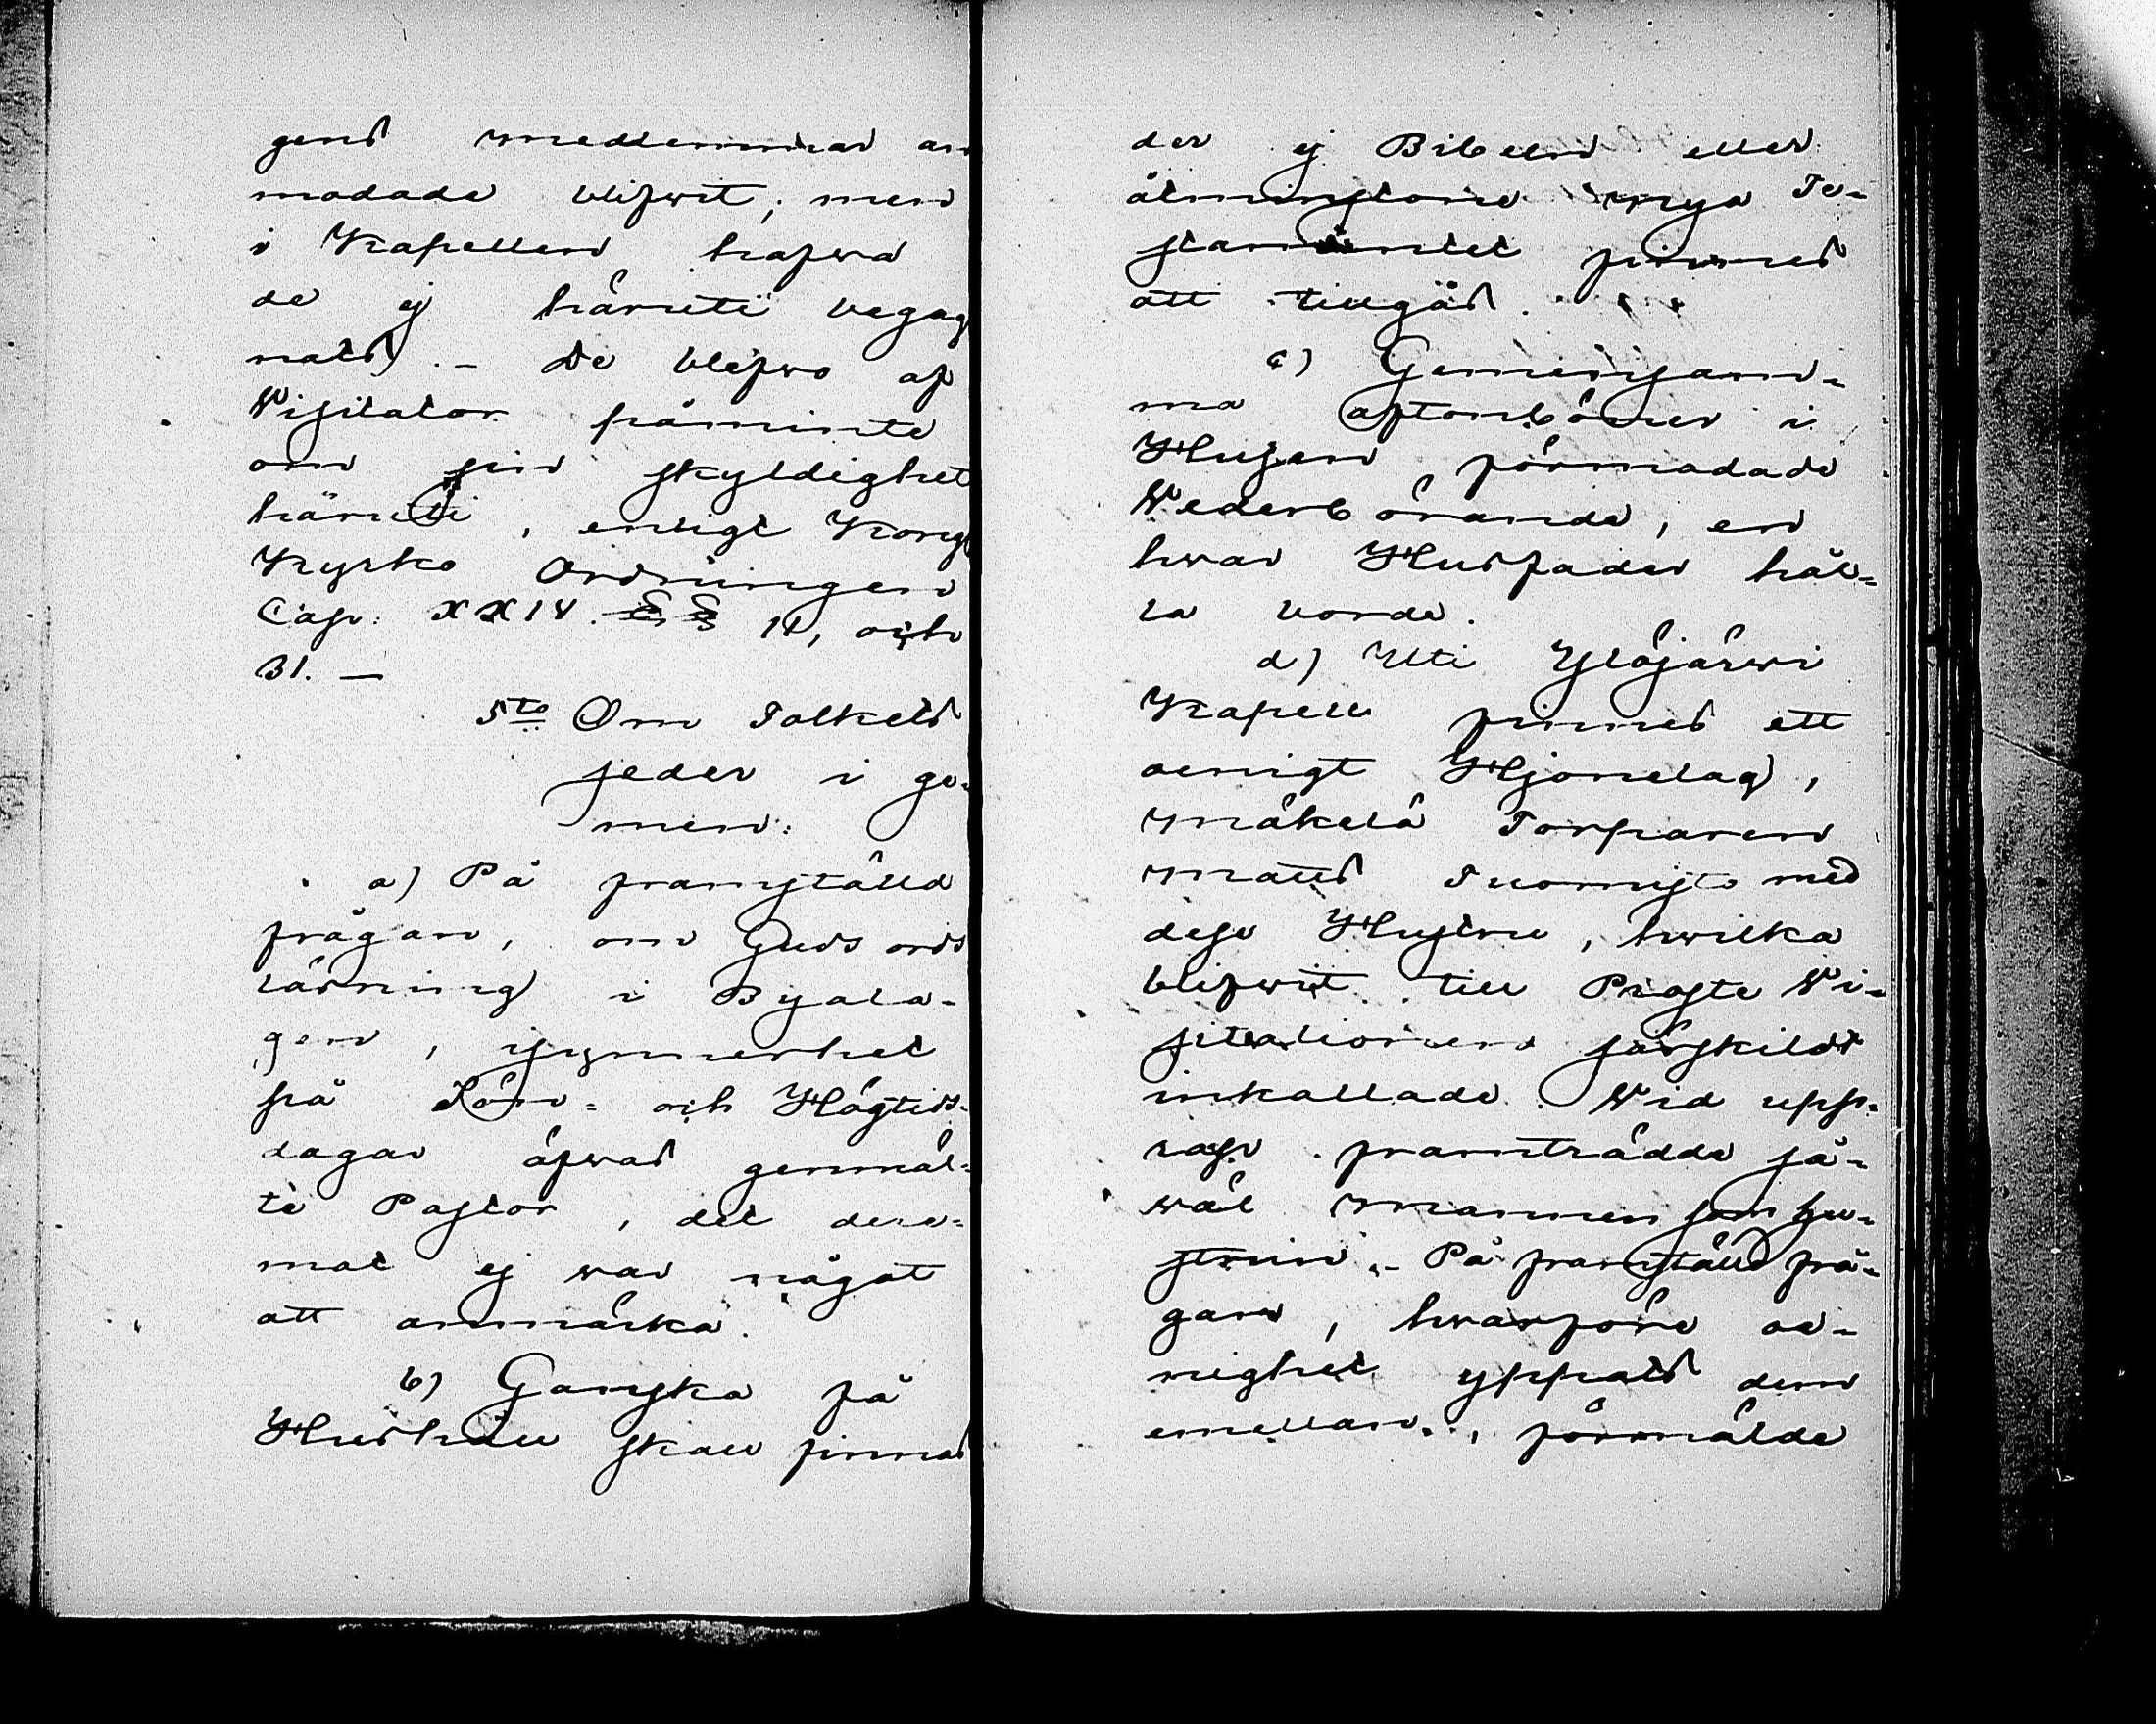 gens medlemmar an
modade blifwit; men
i Kapellen hafwa
de ej häruti begag
nats. – De blefwo af
Visitator påminte
om sin skyldighet
häruti, enligt Kongl
Kyrko Ordningen
Cap: XXIV. §§ 11, och
31. –
5to Om Folkets
seder i ge-
men:
a) På framstäld
frågan, om Guds ords
läsning i Byala-
gen, synnerhet
på Sön- och Högtids-
dagar öfwas genmäl-
te Pastor, det där-
mot ej war något
att anmärka.
b) Ganska få
Hushåll skall finnas
der ej Bibeln eller
åtminstone nya Te-
stamentet finnes
att tillgås.
c) Gemensam-
ma aftonböner i
Husen förmodade
Wederbörande, en
hwar Husfader hål-
la borde.
d) Uti Ylöjärwi
Kapell finnes ett
oenigt Hjonelag,
Mäkelä Torparen
Matts Tuomisto med
dess Hustru, hwilka
blifwit till Proste Vi-
sitationen särskildt
inkallade. Wid upp-
rop framträdde så-
wäl Mannen som hu-
strun. – På framstäld frå-
gan, hwarföre oe-
nighet yppats dem
emellan, förmälde